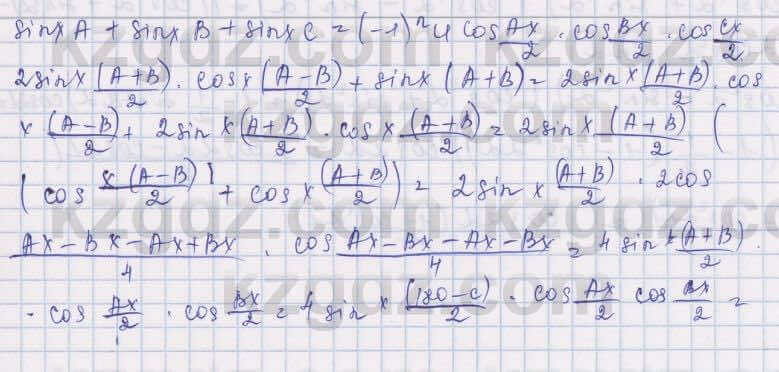 sinxA + sinxB + sinxC = (-1)ⁿ4 cos Ax/2 · cos Bx/2 · cos Cx/2
2sinx (A+B)/2 · cosx (A-B)/2 + sinx (A+B) = 2sinx (A+B)/2 · cos
x (A-B)/2 + 2sinx (A+B)/2 · cosx (A+B)/2 = 2sinx (A+B)/2 (
(cos x(A-B)/2) + cosx (A+B)/2) = 2sinx (A+B)/2 · 2cos
Ax-Bx-Ax+Bx/4 · cos Ax-Bx-Ax-Bx/4 = 4sinx (A+B)/2 ·
· cos Ax/2 · cos Bx/2 = 4sinx (180-C)/2 · cos Ax/2 cos Bx/2 =